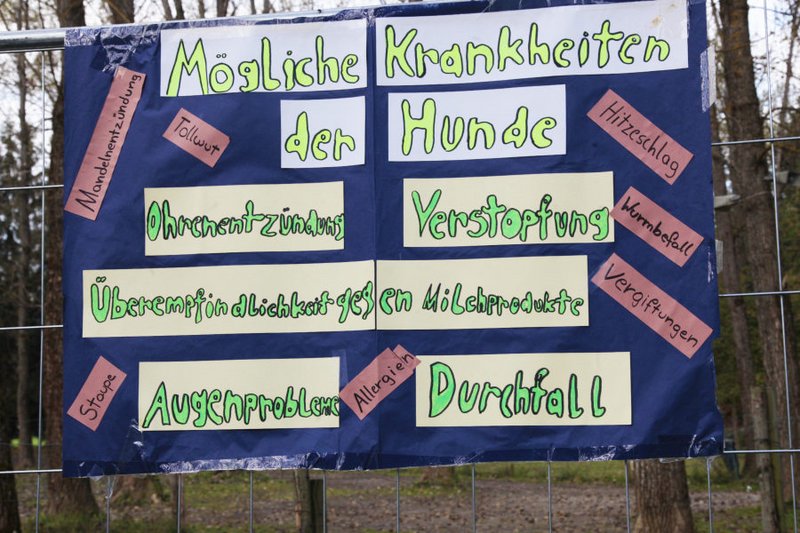 Mögliche Krankheiten
der Hunde
Mandelnentzündung
Tollwut
Hitzeschlag
Ohrenentzündung
Verstopfung
Wurmbefall
Überempfindlichkeit gegen Milchprodukte
Vergiftungen
Staupe
Augenprobleme
Allergien
Durchfall